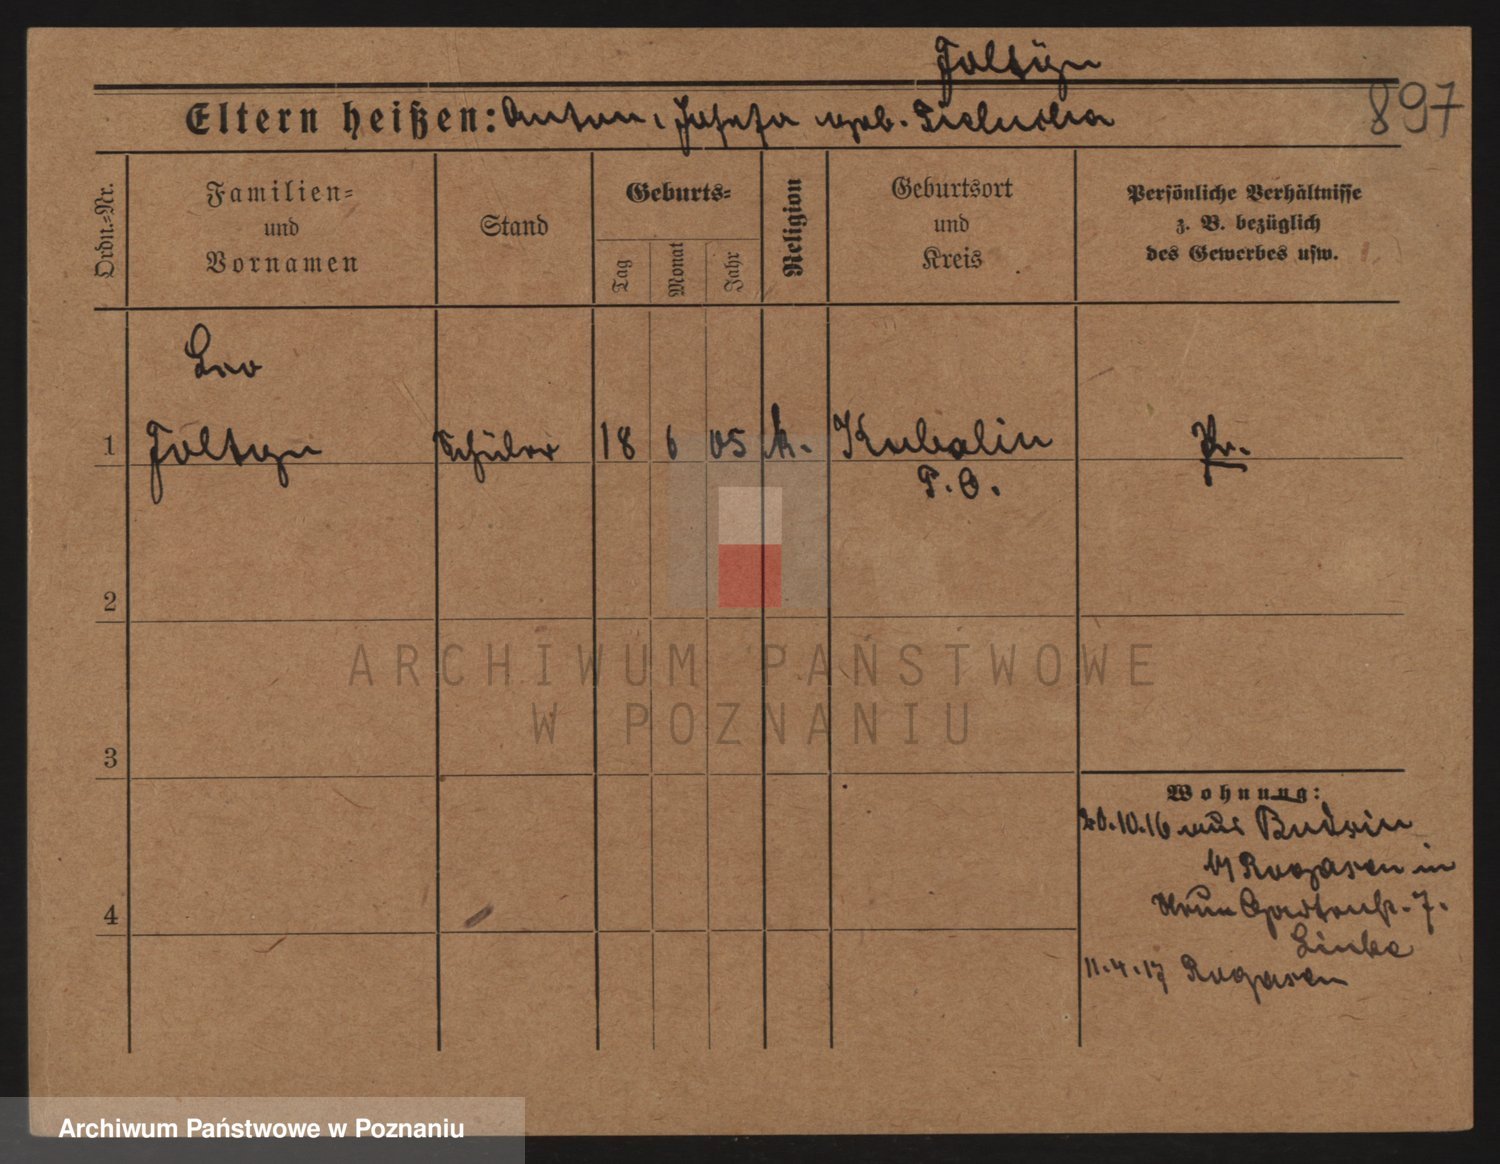 Foltyn
Eltern heißen: Anton, Josefa geb. 
897
Ordn.=Nr.
Familien=
und
Vornamen
Stand
Geburts=
Tag
Monat
Jahr
Religion
Geburtsort
und
Kreis
Persönliche Verhältnisse
z. B. bezüglich
des Gewerbes usw.
Leo
1 Foltyn Schüler 18 6 05 k. Kubalin Pr.
P. O.
2
3
4
Wohnung:
20.10.16 aus Budsin
Rogasen in
7.
Linke
11.4.17 Rogasen
ARCHIWUM PAŃSTWOWE
W POZNANIU
Archiwum Państwowe w Poznaniu